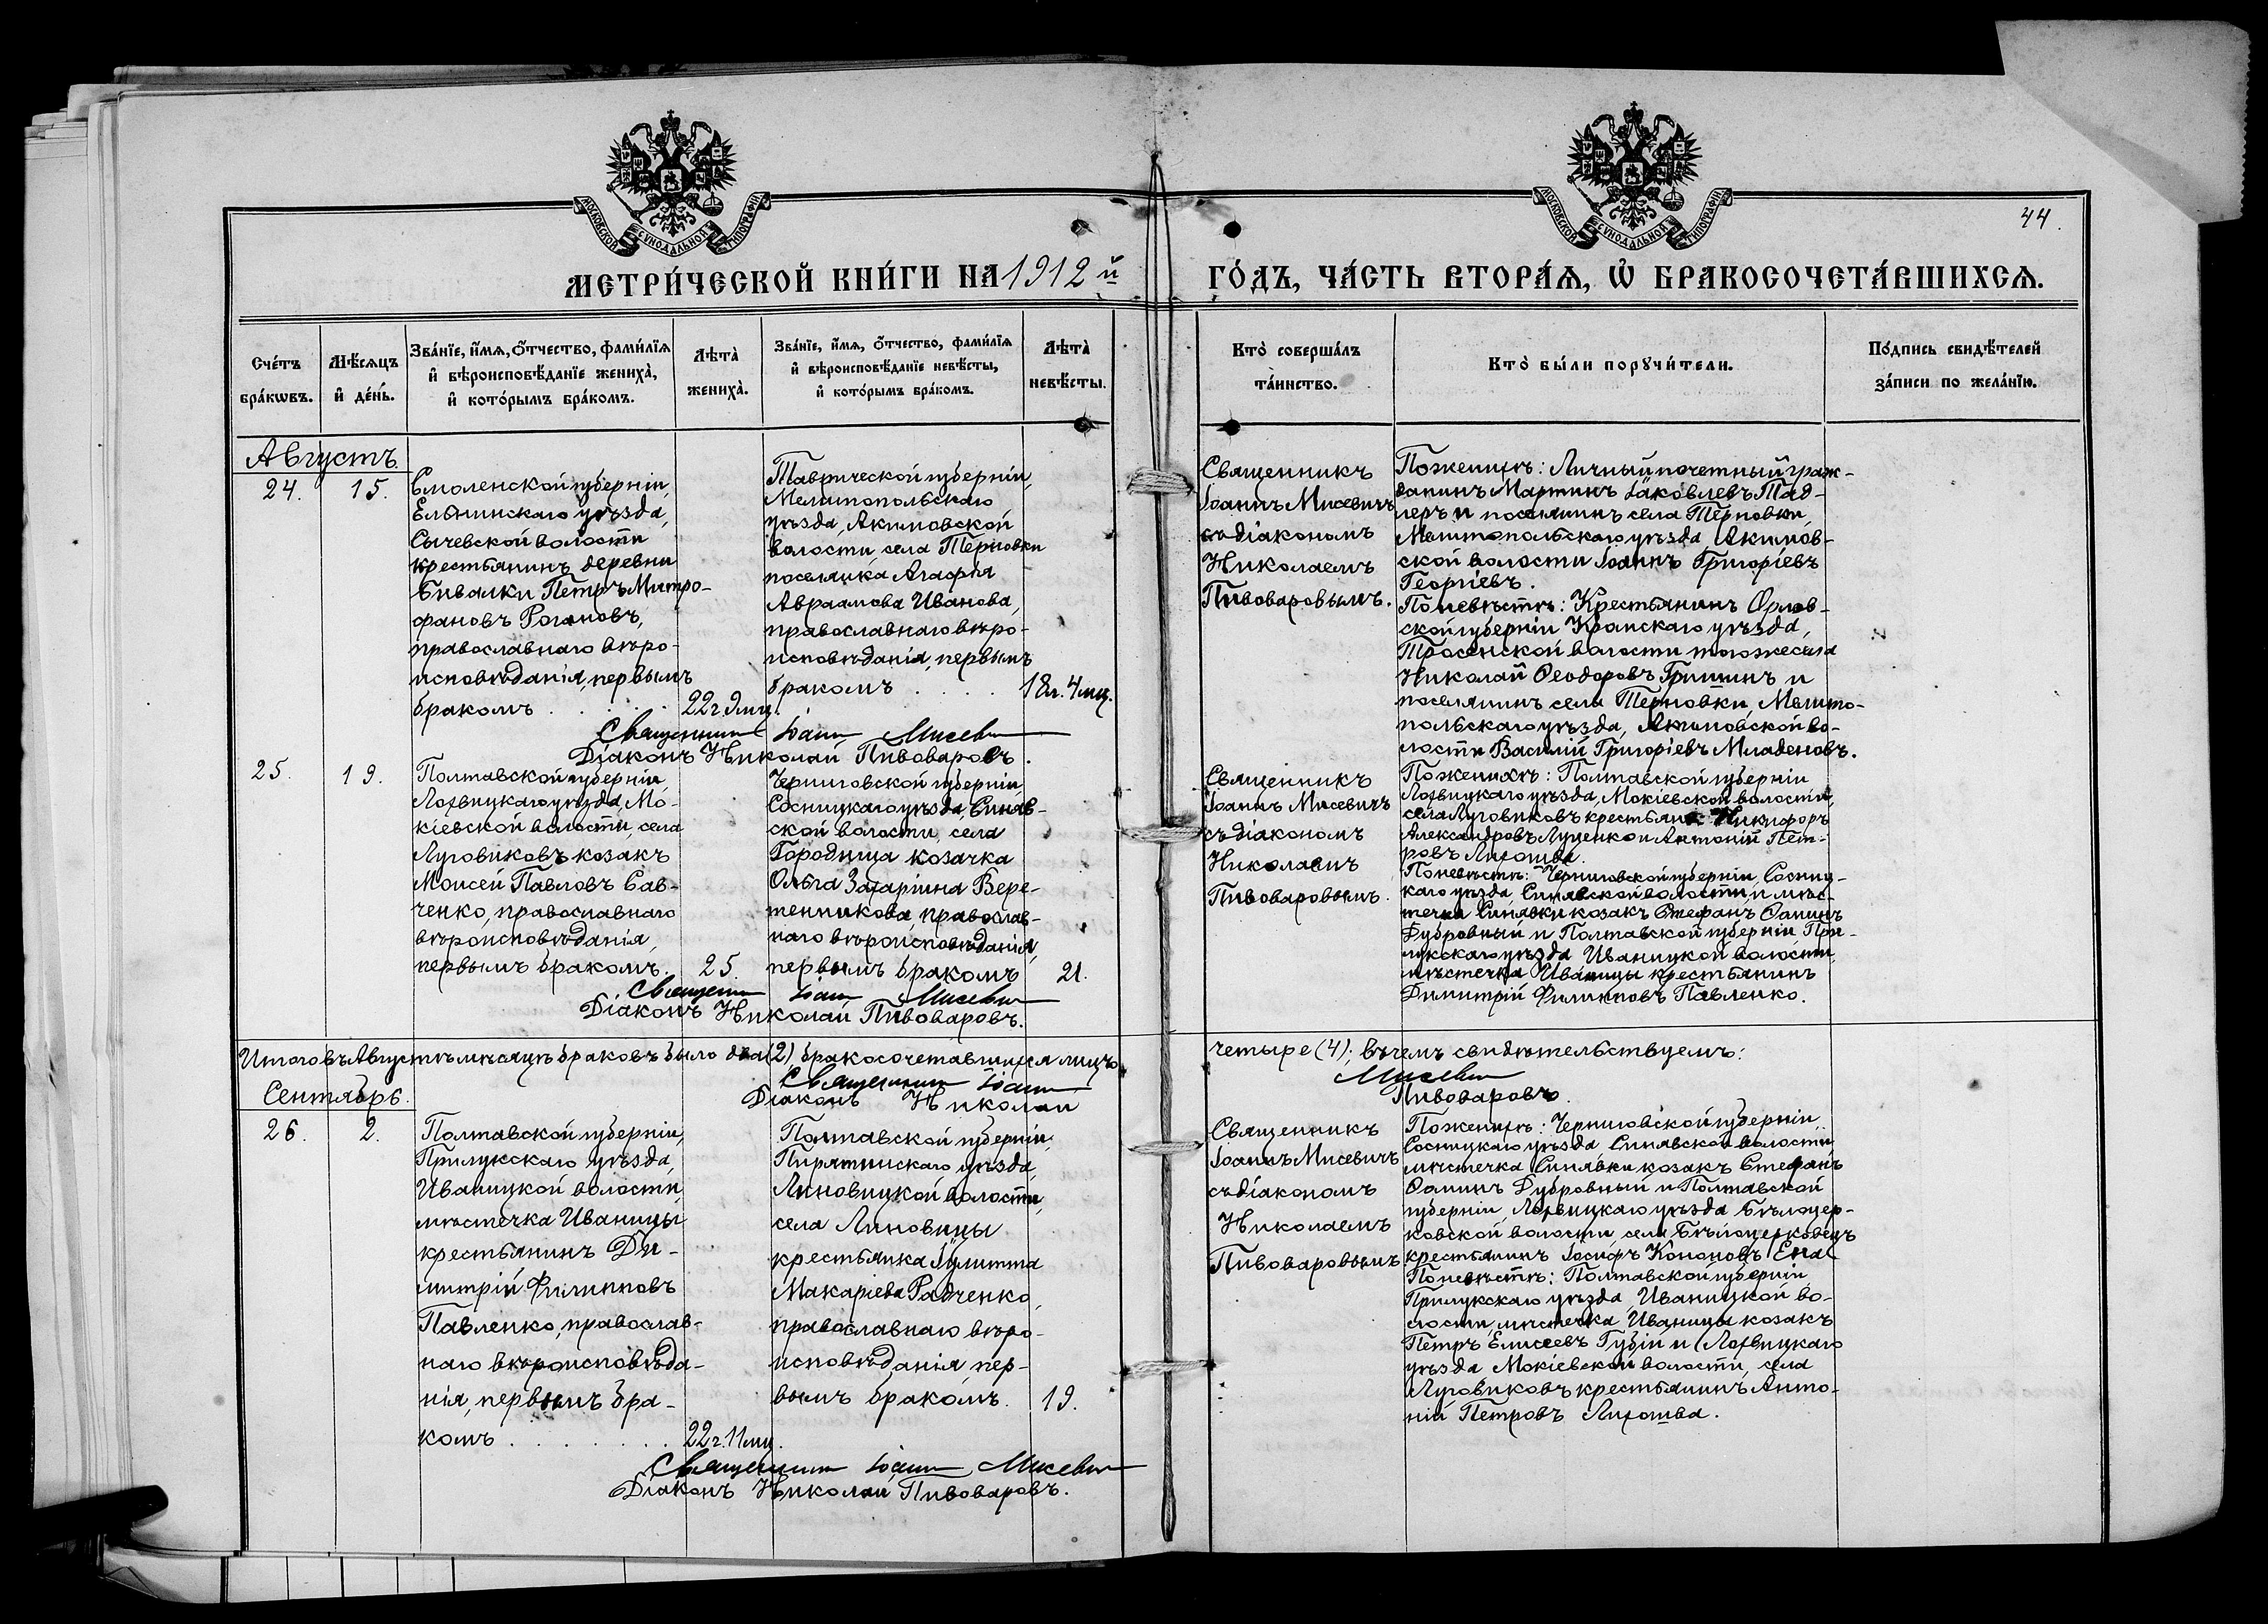 МОСКОВСКОЙ СѴНОДАЛЬНОЙ ТИПОГРАФІИ
МОСКОВСКОЙ СѴНОДАЛЬНОЙ ТИПОГРАФІИ
44.
МЕТРИ́ЧЕСКОЙ КНИ́ГИ НА 1912й
ГО́ДЪ, ЧА́СТЬ ВТОРА́Ѧ, Ѡ҆ БРАКОСОЧЕТА́ВШИХСѦ.
Сче́тъ
бра́кѡвъ.
Мѣ́сѧцъ
и҆ де́нь.
Зва́нїе, и҆́мѧ, ѻ҆́тчество, фами́лїѧ
и҆ вѣроисповѣ́данїе жениха̀,
и҆ кото́рымъ бра́комъ.
Лѣта̀
жениха̀.
Зва́нїе, и҆́мѧ, ѻ҆́тчество, фами́лїѧ
и҆ вѣроисповѣ́данїе невѣ́сты,
и҆ кото́рымъ бра́комъ.
Лѣта̀
невѣ́сты.
Кто̀ соверша́лъ
та́инство.
Кто̀ бы́ли порꙋчи́тели.
По́дпись свидѣ́телей
за́писи по жела́нїю.
Августъ.
24.
15.
Смоленской губерніи,
Ельнинскаго уѣзда,
Сычевской волости
крестьянинъ деревни
Бивалки Петръ Митро-
фановъ Рогановъ,
православнаго вѣро-
исповѣданія, первымъ
бракомъ . . . . .
22 г. 9 мц.
Таврической губерніи,
Мелитопольскаго
уѣзда, Акимовской
волости, села Терновки
поселянка Агафія
Авраамова Иванова,
православнаго вѣро-
исповѣданія, первымъ
бракомъ . . . .
18 л. 4 мц.
Священникъ
Іоаннъ Мисевичъ
съ діакономъ
Николаемъ
Пивоваровымъ.
По женихѣ: Личный почетный граж-
данинъ Мартинъ Іаковлевъ Тад-
леръ и поселянинъ села Терновки,
Мелитопольскаго уѣзда, Акимов-
ской волости Іоаннъ Григоріевъ
Георгіевъ.
По невѣстѣ: Крестьянинъ Орлов-
ской губерніи Кромскаго уѣзда,
Тросенской волости того же села
Николай Ѳеодоровъ Гришинъ и
поселянинъ села Терновки, Мелито-
польскаго уѣзда, Акимовской во-
лости Василій Григоріевъ Младеновъ.
Священникъ Іоаннъ Мисевичъ
Діаконъ Николай Пивоваровъ.
25.
19.
Полтавской губерніи,
Лохвицкаго уѣзда, Мо-
кіевской волости, села
Луговиковъ козакъ
Моисей Павловъ Сав-
ченко, православнаго
вѣроисповѣданія,
первымъ бракомъ.
25.
Черниговской губерніи,
Сосницкаго уѣзда, Синяв-
ской волости, села
Городища козачка
Ольга Захаріина Вере-
тенникова, православ-
наго вѣроисповѣданія,
первымъ бракомъ
21.
Священникъ
Іоаннъ Мисевичъ
съ діакономъ
Николаемъ
Пивоваровымъ.
По женихѣ: Полтавской губерніи
Лохвицкаго уѣзда, Мокіевской волости,
села Луговиковъ крестьяне Никифоръ
Александровъ Луценко и Антоній Пет-
ровъ Лихошва.
По невѣстѣ: Черниговской губерніи, Сосниц-
каго уѣзда Синявской волости, и мѣс-
течка Синявки козакъ Стефанъ Ѳоминъ
Дубровный и Полтавской губерніи При-
лукскаго уѣзда Иваницкой волости,
мѣстечка Иваницы крестьянинъ
Димитрій Филипповъ Павленко.
Священникъ Іоаннъ Мисевичъ
Діаконъ Николай Пивоваровъ.
Итого въ Августѣ мѣсяцѣ браковъ было два (2), бракосочетавшихся лицъ
четыре (4); въ чемъ свидѣтельствуемъ:
Священникъ Іоаннъ Мисевичъ
Діаконъ Николай Пивоваровъ.
Сентябрь.
26.
2.
Полтавской губерніи,
Прилукскаго уѣзда,
Иваницкой волости,
мѣстечка Иваницы
крестьянинъ Ди-
митрій Филипповъ
Павленко, православ-
наго вѣроисповѣда-
нія, первымъ бра-
комъ . . . . . . . .
22 г. 11 мц.
Полтавской губерніи,
Пирятинскаго уѣзда,
Линовицкой волости,
села Линовицы
крестьянка Іулитта
Макаріева Радченко,
православнаго вѣро-
исповѣданія, пер-
вымъ бракомъ.
19.
Священникъ
Іоаннъ Мисевичъ
съ діакономъ
Николаемъ
Пивоваровымъ
По женихѣ: Черниговской губерніи,
Сосницкаго уѣзда Синявской волости
мѣстечка Синявки козакъ Стефанъ
Ѳоминъ Дубровный и Полтавской
губерніи, Лохвицкаго уѣзда Бѣлоцер-
ковской волости, села Бѣлоцерковецъ
крестьянинъ Іосифъ Кононовъ Ена
По невѣстѣ: Полтавской губерніи
Прилукскаго уѣзда, Иваницкой во-
лости, мѣстечка Иваницы козакъ
Петръ Елисеевъ Губій и Лохвицкаго
уѣзда Мокіевской волости, села
Луговиковъ крестьянинъ Анто-
ній Петровъ Лихошва.
Священникъ Іоаннъ Мисевичъ
Діаконъ Николай Пивоваровъ.